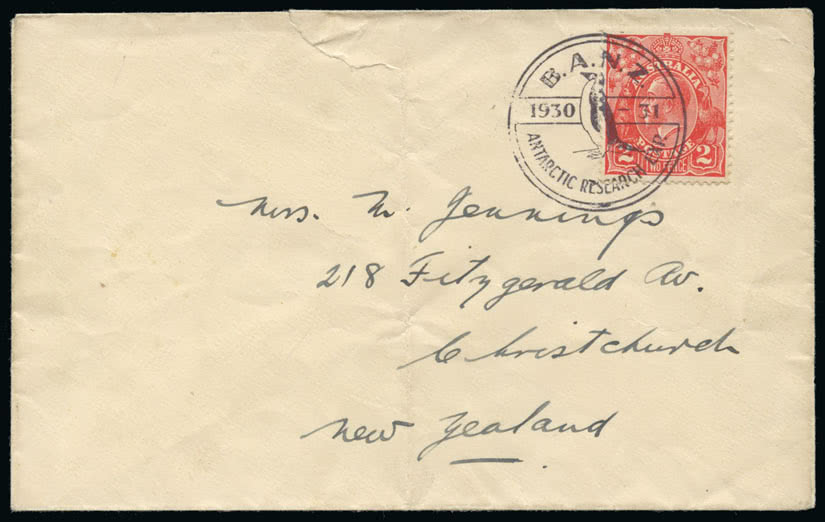 B.A.N.Z.
1930 - 31
ANTARCTIC RESEARCH EXP.
STRALIA
POSTAGE
2 TWO PENCE 2
Mrs. M. Jennings
218 Fitzgerald Av.
Christchurch
New Zealand